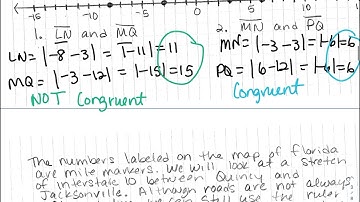 -15 -10 -5 0 5 10
1. LN and MQ
2. MN and PQ
LN= |-8 -3| = |-11| = 11
MN= |-3 -3| = |-6| = 6
MQ = |-3 -12| = |-15| = 15
PQ = |6 -12| = |-6| = 6
NOT Congruent
Congruent
The numbers labeled on the map of Florida
are mile markers. We will look at a stretch
of interstate 10 between Quincy and
Jacksonville. Although roads are not always
can still use the ruler